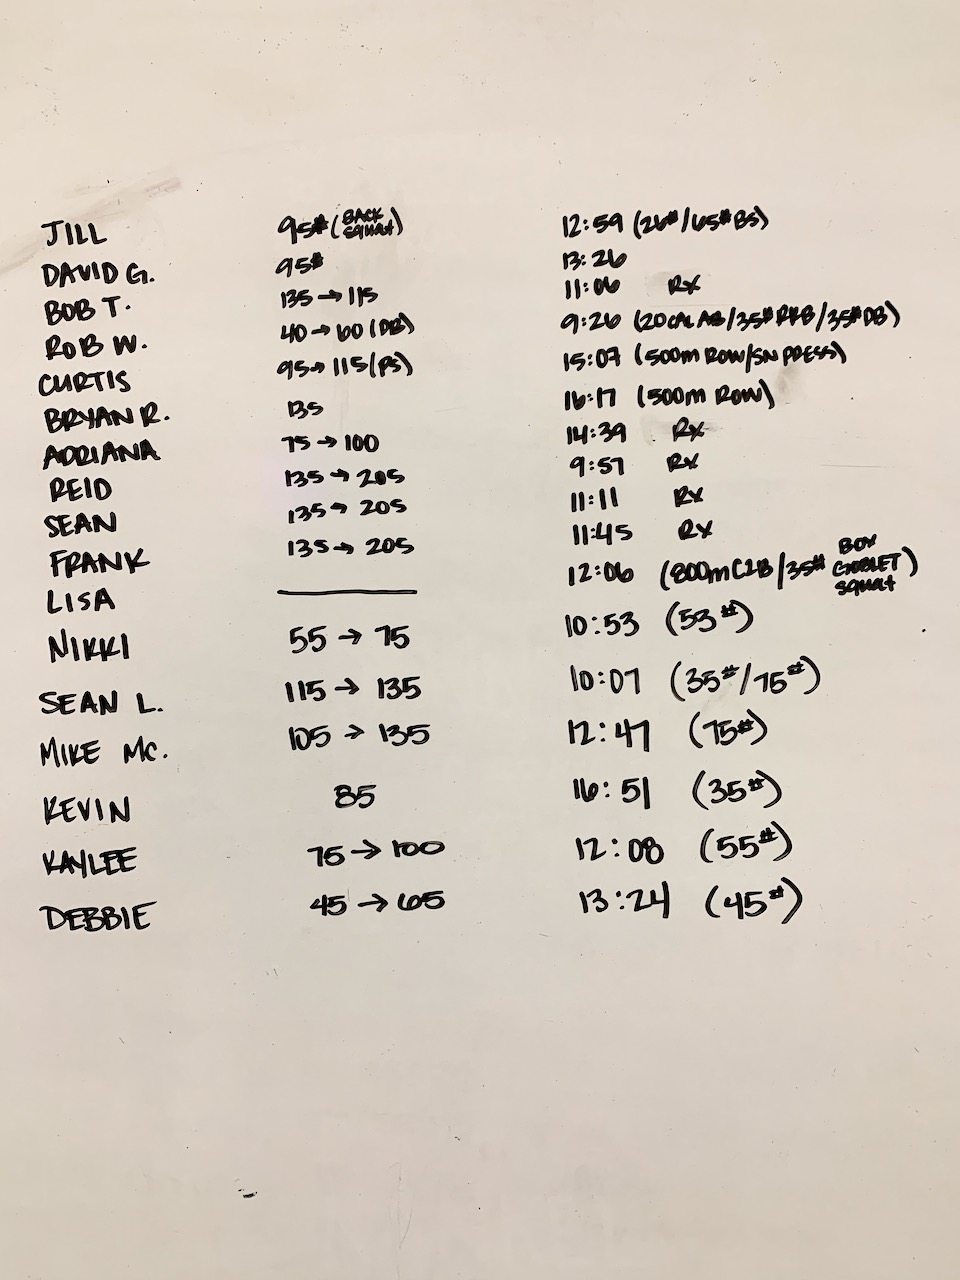 JILL 95# (BACK SQUAT) 12:59 (26#/65# BS)
DAVID G. 95# 13:26
BOB T. 135→115 11:06 RX
ROB W. 40→60 (DB) 9:26 (20CAL AB/35# RKB/35# DB)
CURTIS 95→115 (PS) 15:07 (500m ROW/SN PRESS)
BRYAN R. 135 16:17 (500m ROW)
ADRIANA 75→100 14:39 RX
REID 135→205 9:57 RX
SEAN 135→205 11:11 RX
FRANK 135→205 11:45 RX
LISA 12:06 (800m C2B/35# BOX GOBLET SQUAT)
NIKKI 55→75 10:53 (53#)
SEAN L. 115→135 10:07 (35#/75#)
MIKE MC. 105→135 12:47 (75#)
KEVIN 85 16:51 (35#)
KAYLEE 75→100 12:08 (55#)
DEBBIE 45→65 13:24 (45#)